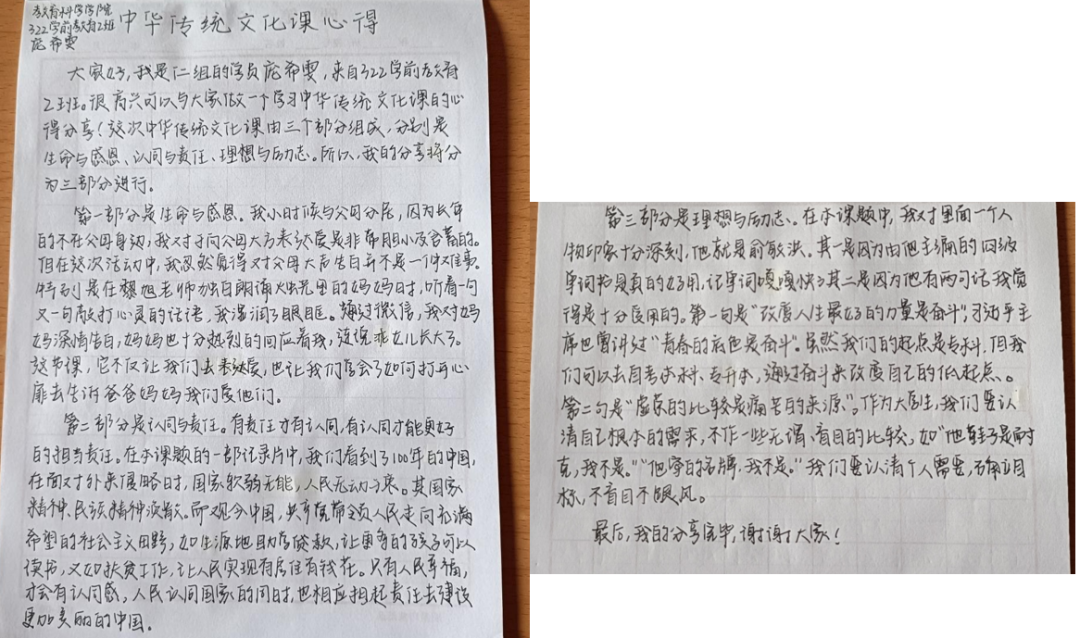 教育科学学院
322学前教育2班
庞希雯
中华传统文化课心得
大家好,我是仁组的学员庞希雯,来自322学前教育
2班。很高兴可以与大家做一个学习中华传统文化课的心
得分享!这次中华传统文化课由三个部分组成,分别是
生命与感恩、认同与责任、理想与励志。所以,我的分享将分
为三部分进行。
第一部分是生命与感恩。我小时候与父母分居,因为长年
的不在父母身边,我对于向父母大方表达爱是非常胆小及吝啬的。
但在这次活动中,我忽然觉得对父母大声告白并不是一件难事。
特别是在黎旭老师独自朗诵火光里的妈妈时,听着一句
又一句敲打心灵的话语,我湿润了眼眶。通过微信,我对妈
妈深情告白,妈妈也十分热烈的回应着我,连说 女儿长大了。
这节课,它不仅让我们去表达爱,也让我们学会了如何打开心
扉去告诉爸爸妈妈我们爱他们。
第二部分是认同与责任。有责任才有认同,有认同才能更好
的担当责任。在本课题的一部记录片中,我们看到了100年的中国,
在面对外来侵略时,国家软弱无能,人民无动于衷。其国家
精神、民族精神涣散。而现今中国,共产党带领人民走向充满
希望的社会主义田野,如生源地助学贷款,让更多的孩子可以
读书,又如扶贫工作,让人民实现有居住有钱花。只有人民幸福,
才会有认同感,人民认同国家的同时,也相应担起责任去建设
更加美丽的中国。
第三部分是理想与励志。在本课题中,我对里面一个人
物印象十分深刻,他就是俞敏洪。其一是因为由他主编的四级
单词书是真的好用,记单词嘎嘎快;其二是因为他有两句话我觉
得是十分受用的。第一句是“改变人生最好的力量是奋斗”,习近平主
席也曾讲过“青春的底色是奋斗”。虽然我们的起点是专科,但我
们可以去自考本科、专升本,通过奋斗来改变自己的低起点。
第二句是“虚荣的比较是痛苦的来源”。作为大学生,我们要认
清自己根本的需求,不作一些无谓、盲目的比较。如“他鞋子是耐
克,我不是。”“他穿的名牌,我不是。”我们要认清个人需要,确立目
标,不盲目不跟风。
最后,我的分享完毕,谢谢大家!